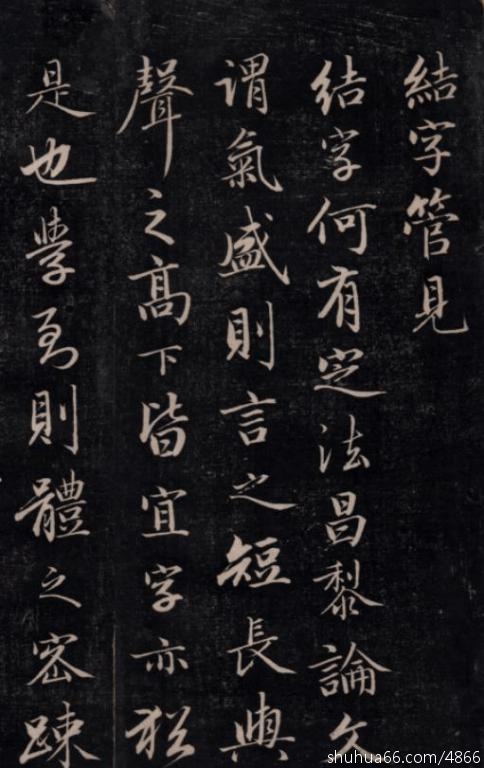 結字管見
結字何有定法昌黎論文
謂氣盛則言之短長與
聲之高下皆宜字亦猶
是也學到則體之密疎
shuhua66.com/4866